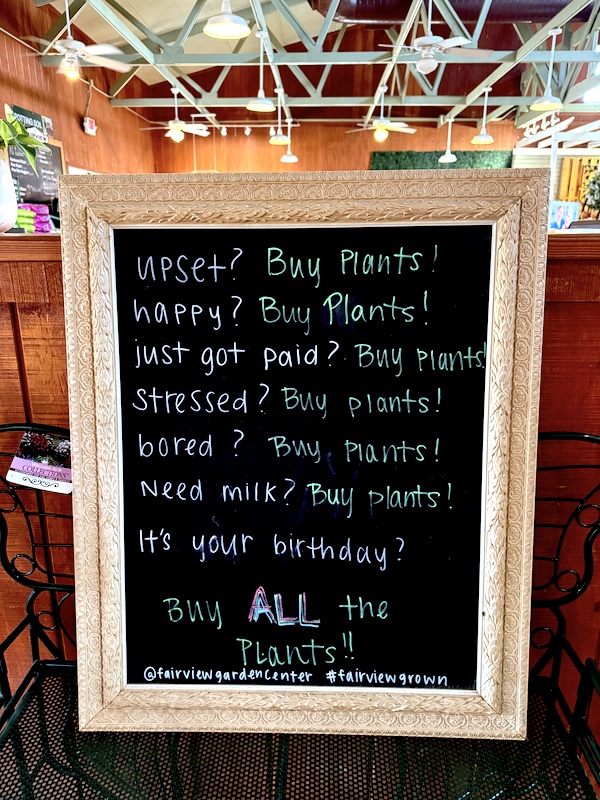 POTTING SOIL
upset? Buy Plants!
happy? Buy Plants!
just got paid? Buy plants!
stressed? Buy plants!
bored ? Buy plants!
Need milk? Buy plants!
It's your birthday?
Buy ALL the
Plants!!
@fairviewgardencenter #fairviewgrown
COLLECTIONS